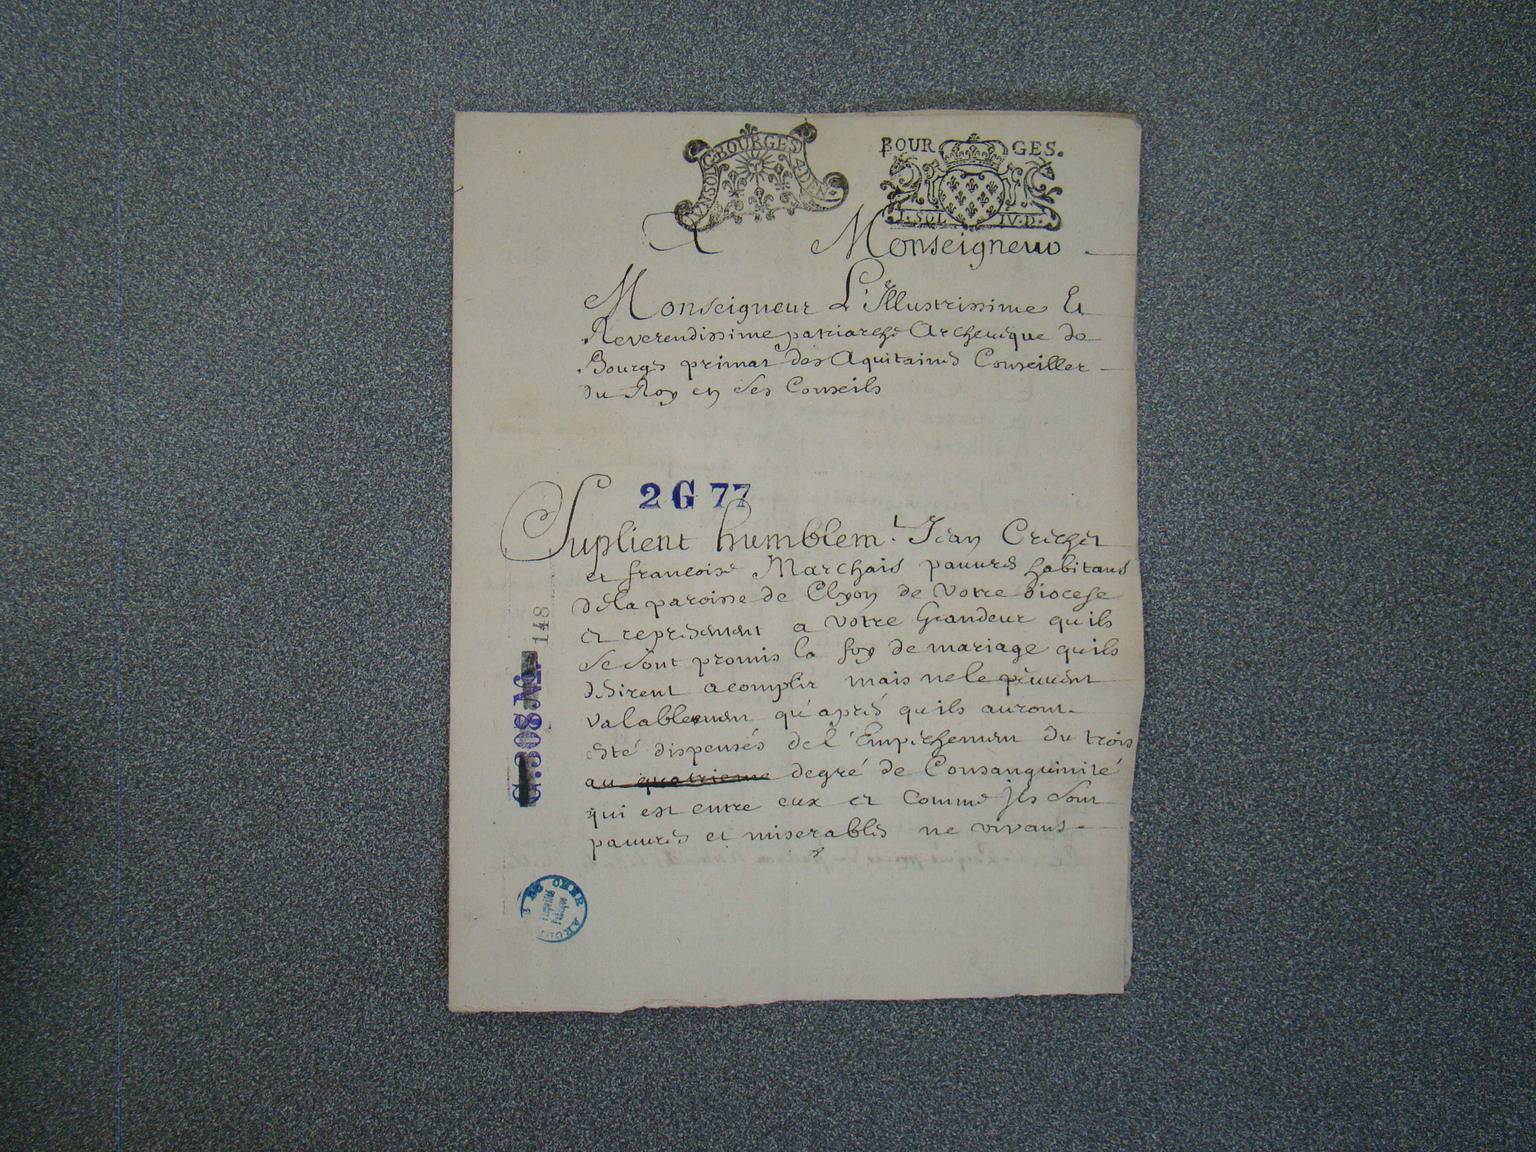 BOURGES
BOUR GES.
SOL IV. D.
A Monseigneur
Monseigneur L'Illustrissime Et
Reverendissime patriarche Archeveque de
Bourges primat des Aquitaines Conseiller
du Roy en ses Conseils
2 G 77
Suplient humblem.t Jean Crechet
et francoise Marchais pauvres habitans
dela paroisse de Clyon de Votre diocese
et representent a Votre Grandeur quils
se sont promis la foy de mariage quils
desirent acomplir mais ne le peuvent
valablement qu'aprés quils auront
esté dispensés del'Empechement du trois
au quatrieme degré de Consanguinité
qui est entre eux et comme Jls sont
pauvres et miserables ne vivans
148
G.308.
DU CHER ARCH